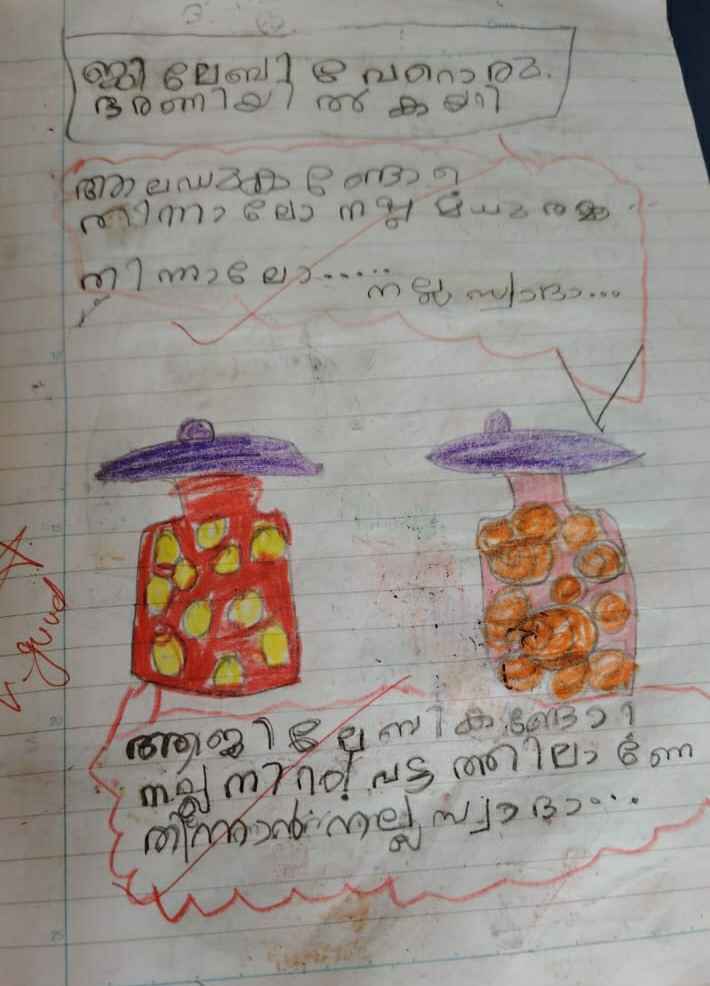 ജിലേബി വേറൊരു
ഭരണിയിൽ കയറി
ആ ലഡുകണ്ടോ
തിന്നാലോ നല്ല മധുരമ്മ
തിന്നാലോ......
നല്ല സ്വാദാ...
ആ ജിലേബി കണ്ടോ
നല്ല നിറപ്പട്ടത്തിലാണേ
തിന്നാൻ നല്ല സ്വാദാ....
good